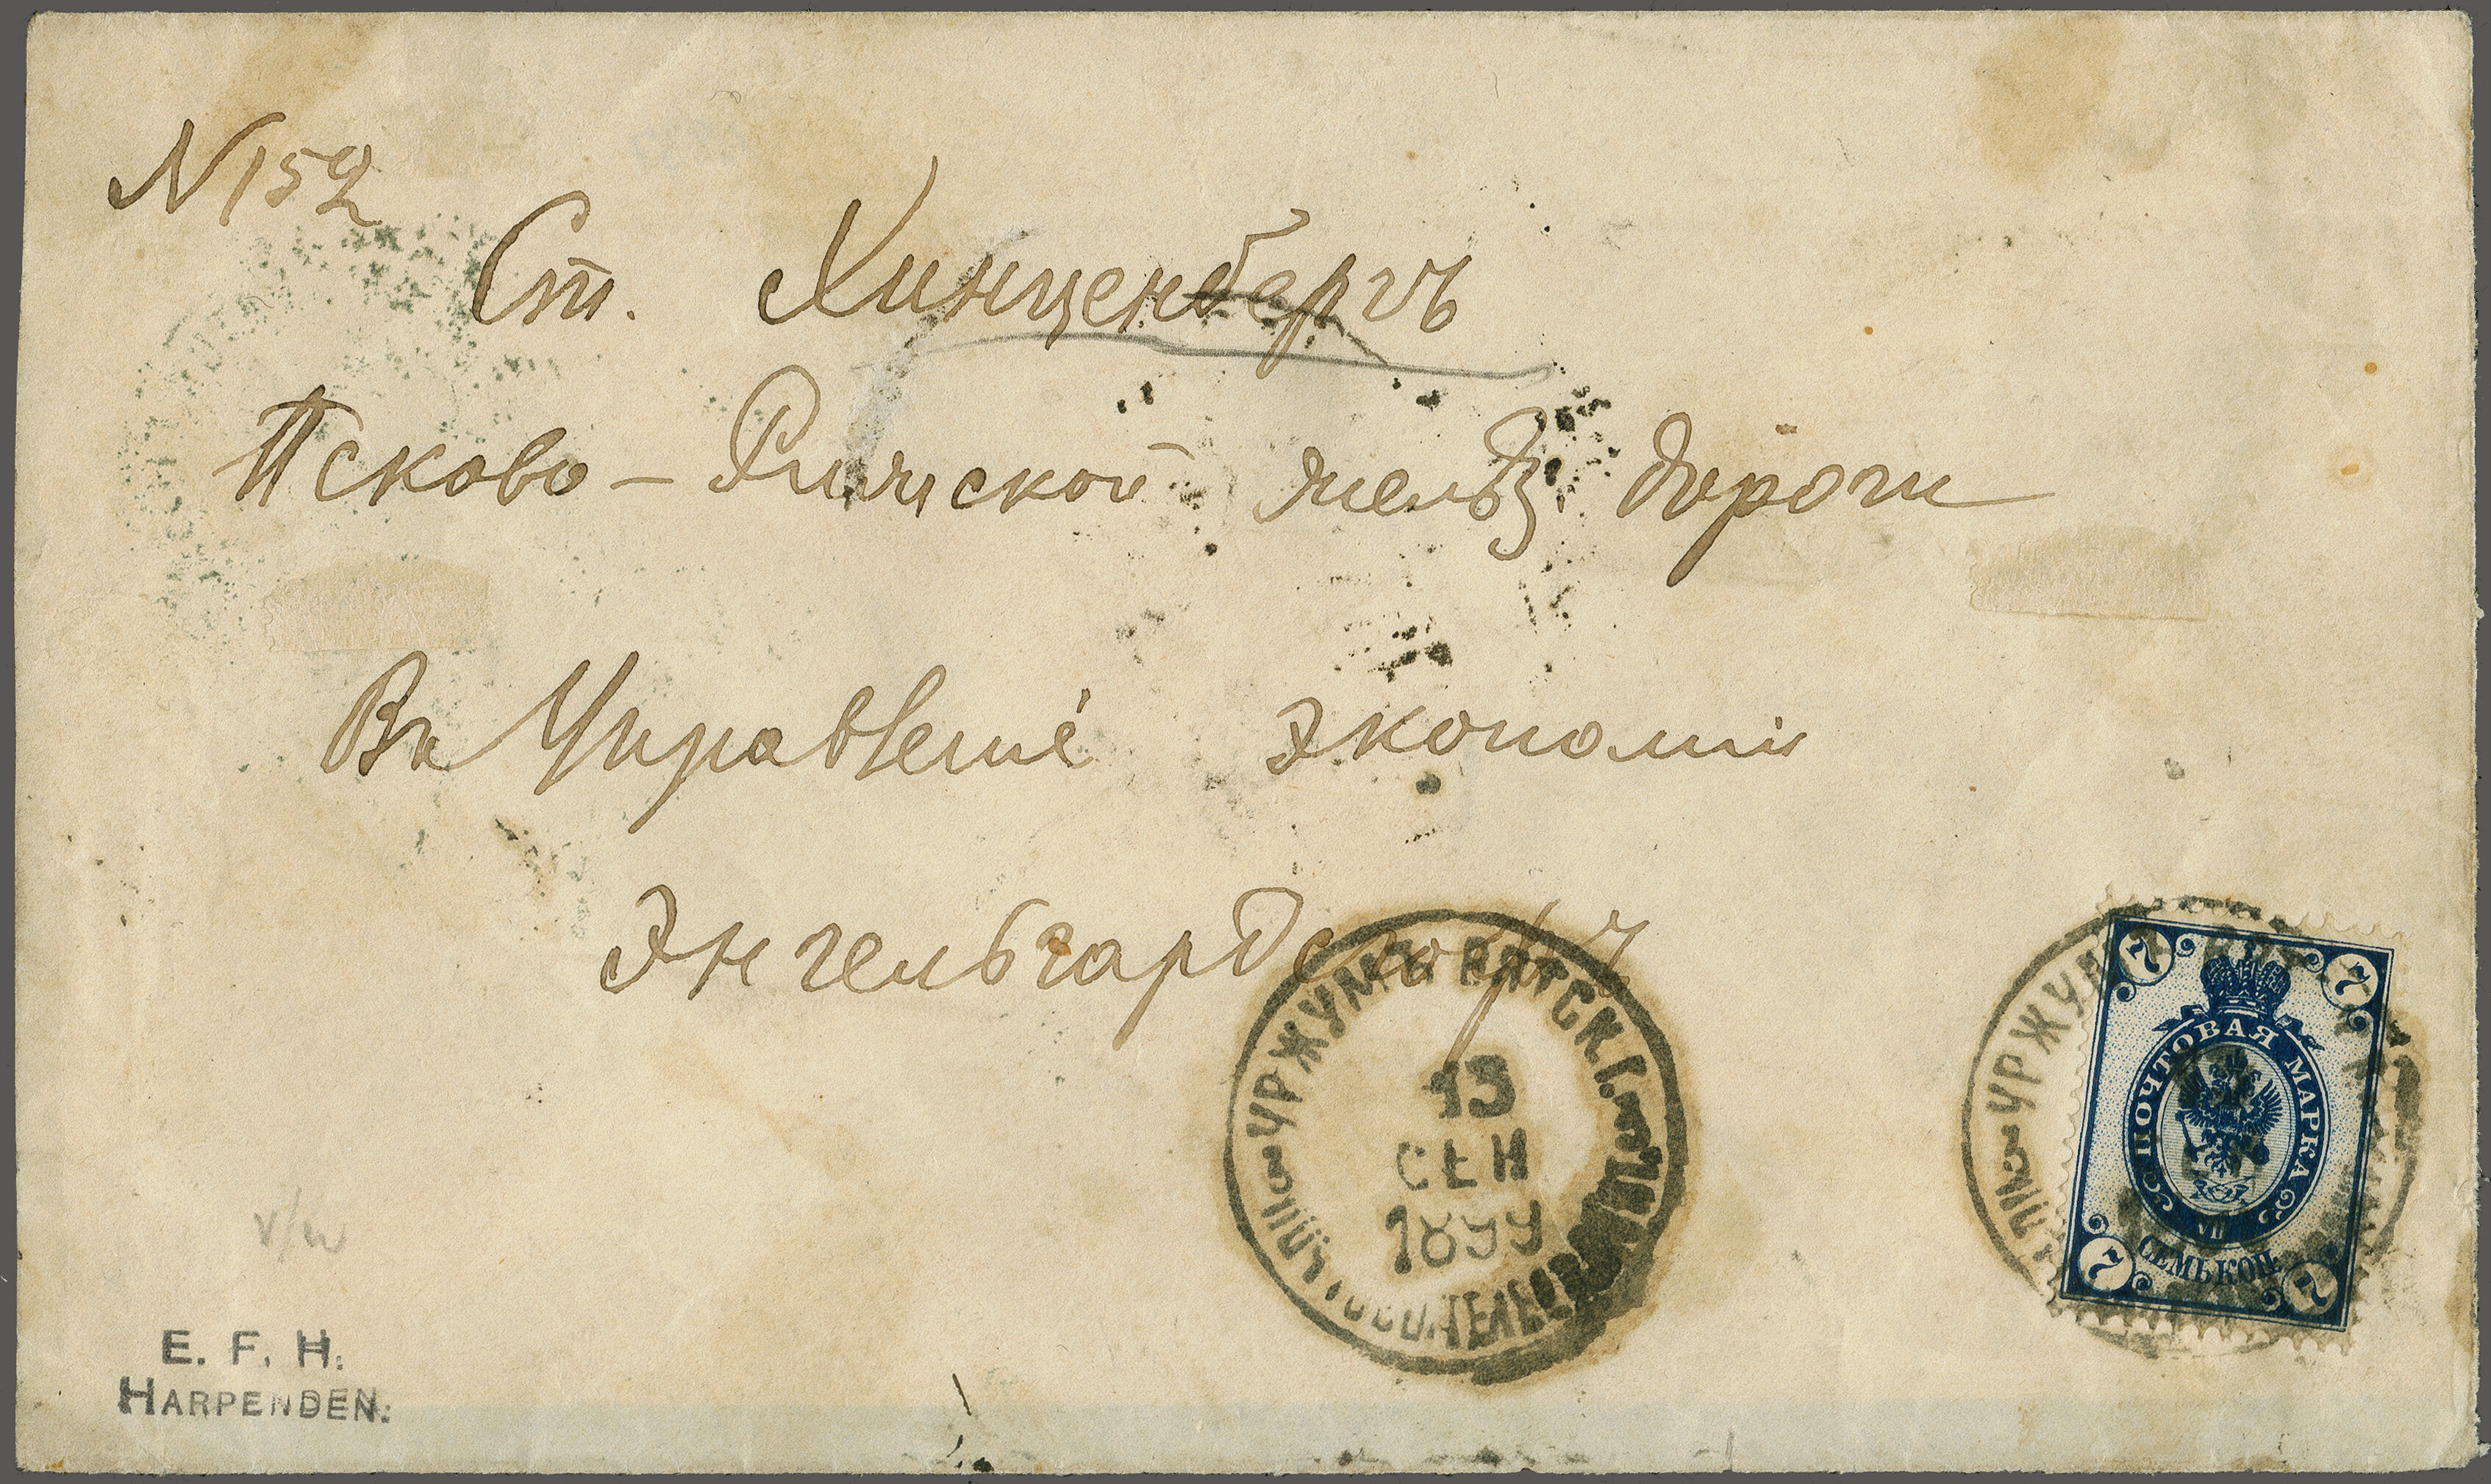 N 152
Ст. Хинценбергъ
Псково-Рижской желѣз. дороги
Въ Управленіе Экономіи
Энгельгардсгофъ
УРЖУМЪ ВЯТСК. Г.
13
СЕН
1899
7 7
ПОЧТОВАЯ МАРКА
VII
СЕМЬ КОП.
7 7
УРЖУМ
v/w
E. F. H.
HARPENDEN.